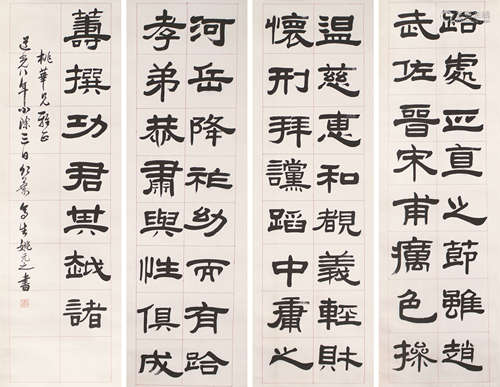 路處正直之節雖趙
武佐晉宋甫癘色操
温慈惠和覩義輕財
懷刑拜讜蹈中庸之
河岳降祉幼而有
孝弟恭肅與性俱成
撰功君其越諸
桃華兄雅正
道光八年小除三日竹葉亭生姚元之書